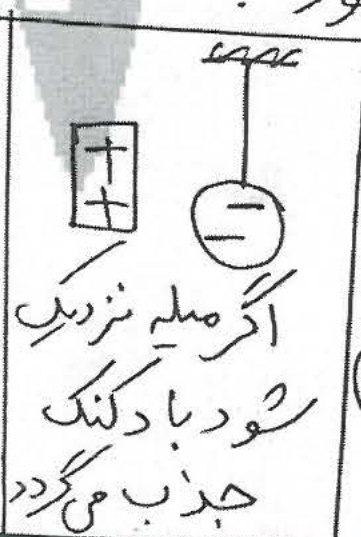 +
+
−
−
اگر میله نزدیک
شود بادکنک
جذب می‌گردد